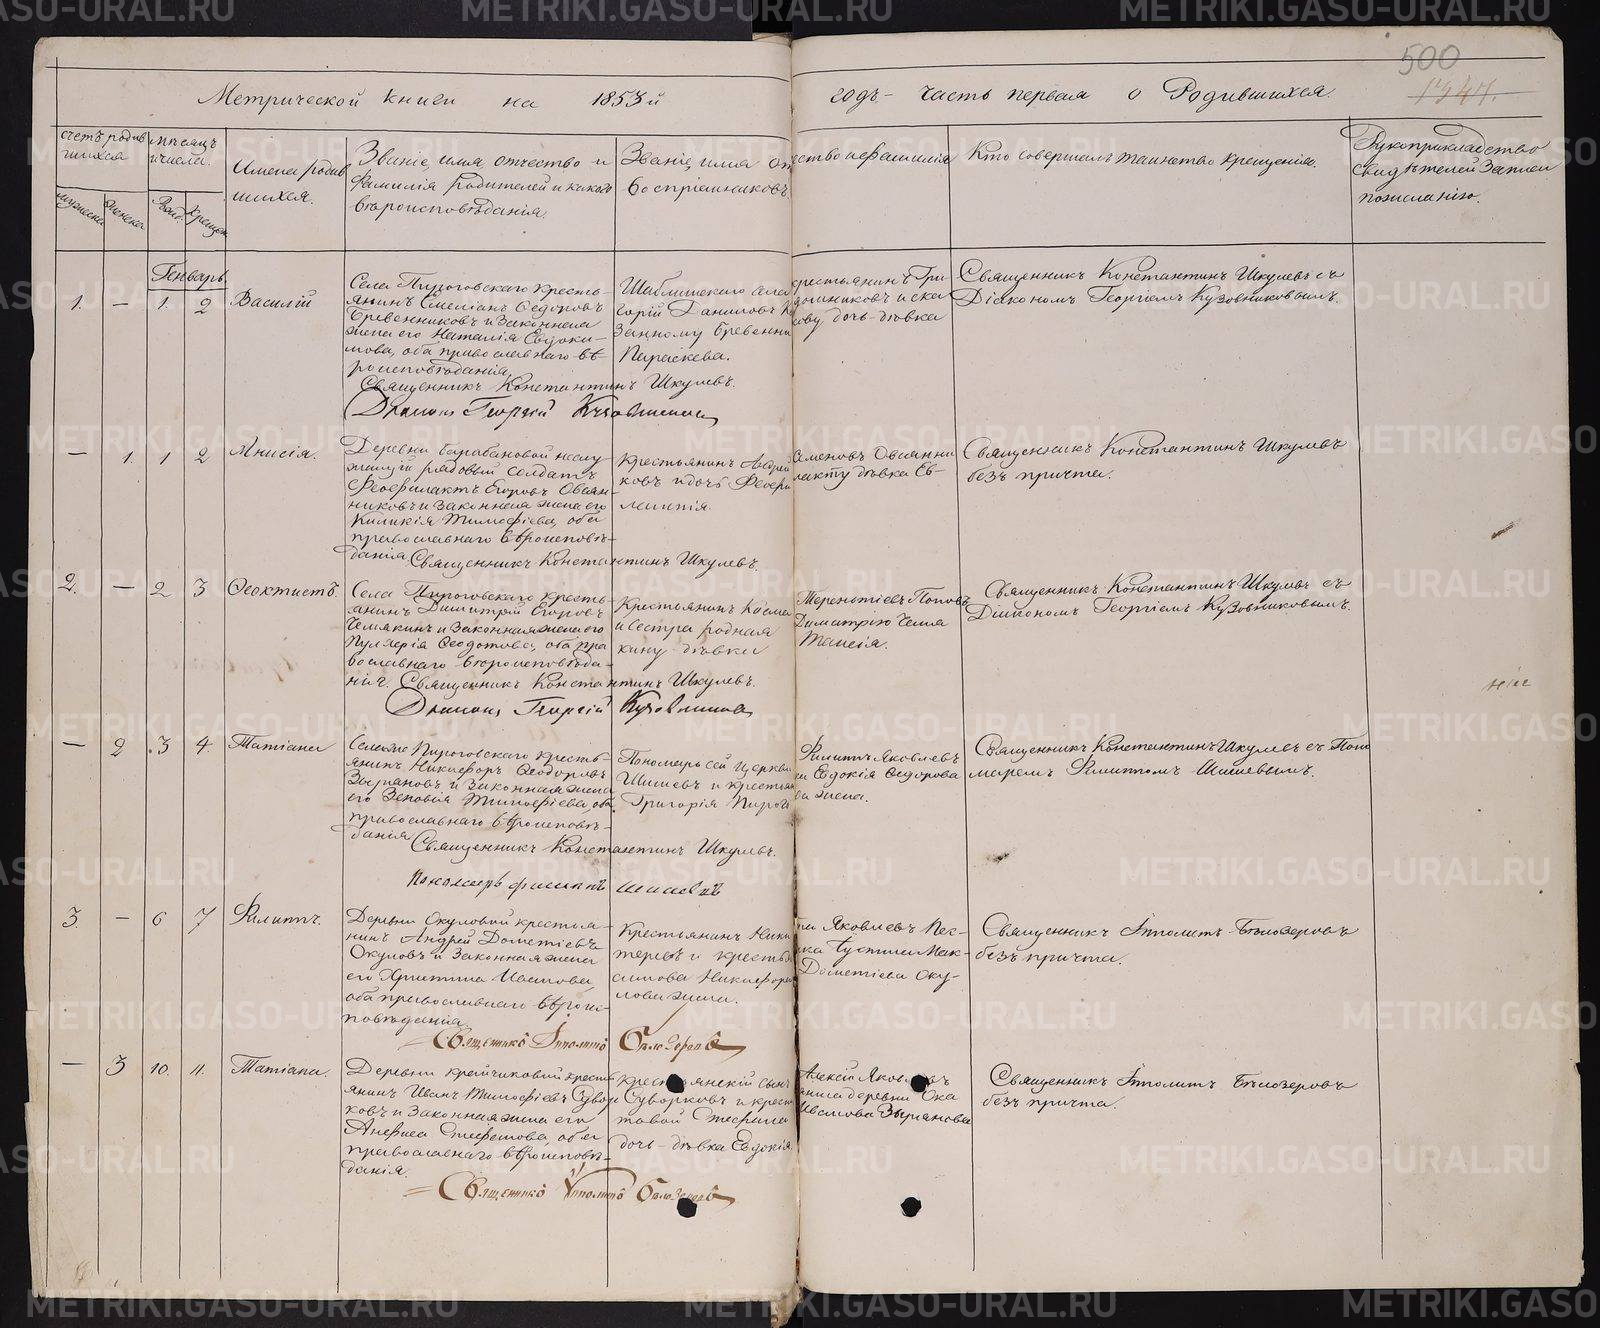 500
1347.
Метрической книги на 1853й
годъ - часть первая о Родившихся.
счетъ родив
шихся
мѣсяцъ
и числа.
Имена родив
шихся.
Званіе, имя, отчество и
фамилія родителей и какого
вѣроисповѣданія.
Званіе, имя от
чество и фамилія
воспріемниковъ.
Кто совершалъ таинство крещенія.
Рукоприкладство
свидѣтелей записи
по желанію.
мужеска
женска
Рожд.
Крещен
Генварь
1. — 1. 2 Василій
Села Пироговскаго кресть-
янинъ Емеліанъ Ѳедоровъ
Бревенниковъ и Законная
жена его Наталія Евдоки-
мова, оба православнаго вѣ-
роисповѣданія,
Священникъ Константинъ Шкулевъ.
Діаконъ Георгій Кузовников
Шаблишскаго села
крестьянинъ Гри-
горій Даниловъ
ову дочь-дѣвка
Параскева.
Священникъ Константинъ Шкулевъ съ
Діакономъ Георгіемъ Кузовниковымъ.
— 1. 1 2 Анисія.
Деревни Барабановой
рядовый солдатъ
Феофилактъ Егоровъ Овсян-
никовъ и Законная жена его
Киликія Тимофіева, оба
православнаго вѣроисповѣ-
данія. Священникъ Константинъ Шкулевъ.
крестьянинъ Андрей
Семеновъ Овсянни
ковъ и дочь Феофи
лакту дѣвка Ев-
лампія.
Священникъ Константинъ Шкулевъ
безъ причта.
2. — 2 3 Ѳеоктистъ.
Села Пироговскаго кресть-
янинъ Димитрій Егоровъ
Чемякинъ и Законная жена его
Пульхерія Ѳеодотова, оба пра
вославнаго вѣроисповѣда-
нія. Священникъ Константинъ Шкулевъ.
Діаконъ Георгій Кузовников
Крестьянинъ Косма
Терентіевъ Поповъ
и сестра родная
Димитрію Чемя
кину дѣвка
Таисія.
Священникъ Константинъ Шкулевъ съ
Діакономъ Георгіемъ Кузовниковымъ.
— 2 3 4. Татіана
Села Пироговскаго кресть-
янинъ Никифоръ Ѳеодоровъ
Зыряновъ и Законная жена
его Зеновія Тимофіева, оба
православнаго вѣроисповѣ-
данія Священникъ Константинъ Шкулевъ.
Пономарь Филиппъ Шишевъ
Пономарь сей церкви
Филиппъ Яковлевъ
Шишевъ и крестьян
ки Евдокія Ѳедорова
Григорія Пирого
ва жена.
Священникъ Константинъ Шкулевъ съ Поно
маремъ Филиппомъ Шишевымъ.
3. — 6 7 Филиппъ.
Деревни Окуловой крестья-
нинъ Андрей Дометіевъ
Окуловъ и Законная жена
его Христина Иванова,
оба православнаго вѣроис-
повѣданія
Священникъ Ипполитъ Бѣлозеровъ
Крестьянинъ Ники
та Яковлевъ Пес-
теревъ и крестья
нка Устинья Мак-
симова Никифора
Дометіева Оку-
лова жена.
Священникъ Ипполитъ Бѣлозеровъ
безъ причта.
— 3 10. 11. Татіана.
Деревни Крайчиковой кресть
янинъ Иванъ Тимофіевъ Сувор
ковъ и Законная жена его
Анфиса Стефанова, оба
православнаго вѣроисповѣ-
данія.
Священникъ Ипполитъ Бѣлозеровъ
крестьянскій сынъ
Алексій Яковлевъ
Суворковъ и крест
янина деревни Ока
товой Стефана
Иванова Зырянова
дочь-дѣвка Евдокія
Священникъ Ипполитъ Бѣлозеровъ
безъ причта.